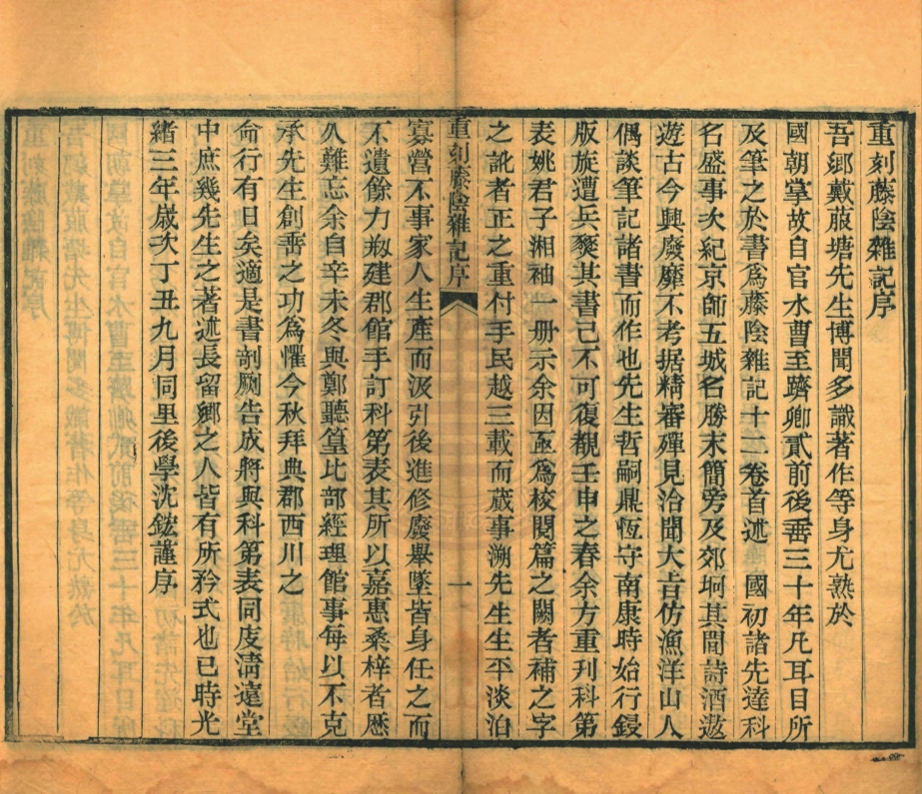 重刻藤陰雜記序
吾鄉戴菔塘先生博聞多識著作等身尤熟於
國朝掌故自官水曹至躋卿貳前後垂三十年凡耳目所
及筆之於書爲藤陰雜記十二卷首述　國初諸先達科
名盛事次紀京師五城名勝末簡旁及郊坰其間詩酒遨
遊古今興廢靡不考据精審殫見洽聞大㫖仿漁洋山人
偶談筆記諸書而作也先生哲嗣鼎恆守南康時始行鋟
版旋遭兵燹其書已不可復覩壬申之春余方重刊科第
表姚君子湘袖一册示余因亟爲校閱篇之闕者補之字
之訛者正之重付手民越三載而蕆事溯先生生平淡泊
重刻藤陰雜記序　一
寡營不事家人生產而汲引後進修廢舉墜皆身任之而
不遺餘力剏建郡館手訂科第表其所以嘉惠桑梓者歷
久難忘余自辛未冬與鄭聽篁比部經理館事每以不克
承先生創善之功爲懼今秋拜典郡西川之
命行有日矣適是書剞劂告成將與科第表同庋淸遠堂
中庶幾先生之著述長留鄉之人皆有所矜式也已時光
緖三年歲次丁丑九月同里後學沈鋐謹序